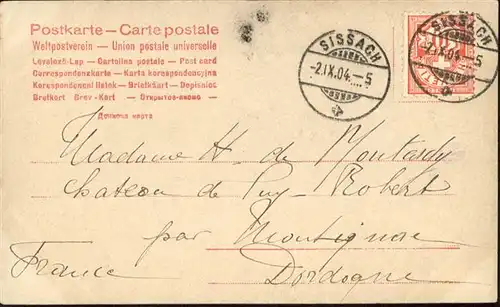 Postkarte – Carte postale
Weltpostverein – Union postale universelle
Levelező-Lap – Cartolina postale – Post card
Correspondenzkarte – Karta korespondencyjna
Korespondenční lístek – Briefkaart – Dopisnice
Brefkort Brev-Kort – Открытое письмо –
Дописна карта
SISSACH
-2.IX.04.–5
SISSACH
-2.IX.04.–5
Madame H. de Montardy
Chateau de Puy-Robert
par Montignac
France Dordogne